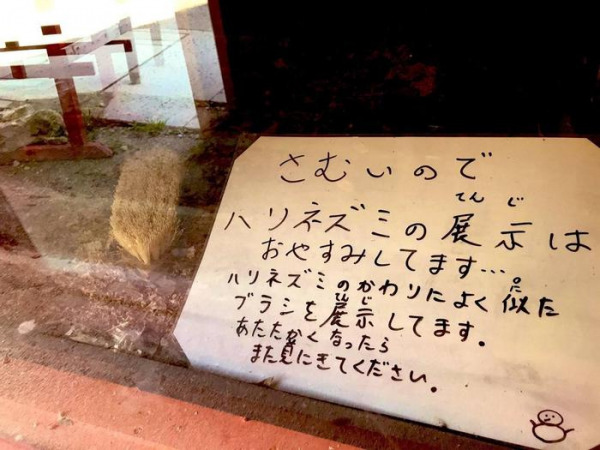 さむいので
てんじ
ハリネズミの展示は
おやすみしてます…
ハリネズミのかわりによく似た
に
てんじ
ブラシを展示してます。
あたたかくなったら
また見にきてください。